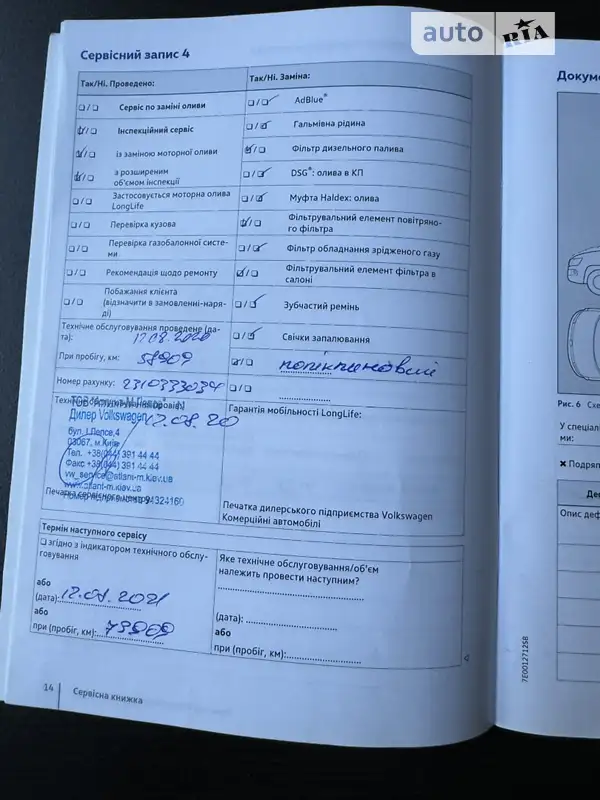 auto RIA
Сервісний запис 4
Так/Ні. Проведено:
Так/Ні. Заміна:
Сервіс по заміні оливи
AdBlue®
Інспекційний сервіс
Гальмівна рідина
із заміною моторної оливи
Фільтр дизельного палива
з розширеним
об'ємом інспекції
DSG®: олива в КП
Застосовується моторна олива
LongLife
Муфта Haldex: олива
Перевірка кузова
Фільтрувальний елемент повітряно-
го фільтра
Перевірка газобалонної систе-
ми
Фільтр обладнання зрідженого газу
Рекомендація щодо ремонту
Фільтрувальний елемент фільтра в
салоні
Побажання клієнта
(відзначити в замовленні-наря-
ді)
Зубчастий ремінь
Технічне обслуговування проведене (да-
та): 17.08.2020
Свічки запалювання
При пробігу, км: 58909
Номер рахунку: 2310333034
Гарантія мобільності LongLife:
17.08.20
Дилер Volkswagen
бул. І.Лепсе,4
03067, м.Київ
Тел. +38(044) 391 44 44
Факс +38(044) 391 44 44
vw_service@atlant-m.kiev.ua
www.atlant-m.kiev.ua
Печатка дилерського підприємства Volkswagen
Комерційні автомобілі
Термін наступного сервісу
згідно з індикатором технічного обслу-
говування
Яке технічне обслуговування/об'єм
належить провести наступним?
або
(дата):
(дата):
або
або
при (пробіг, км):
при (пробіг, км):
14
Сервісна книжка
7E0012712SB
Докуме
Рис. 6 Схе
У спеціал
ми:
✖ Подряп
Де
Опис деф